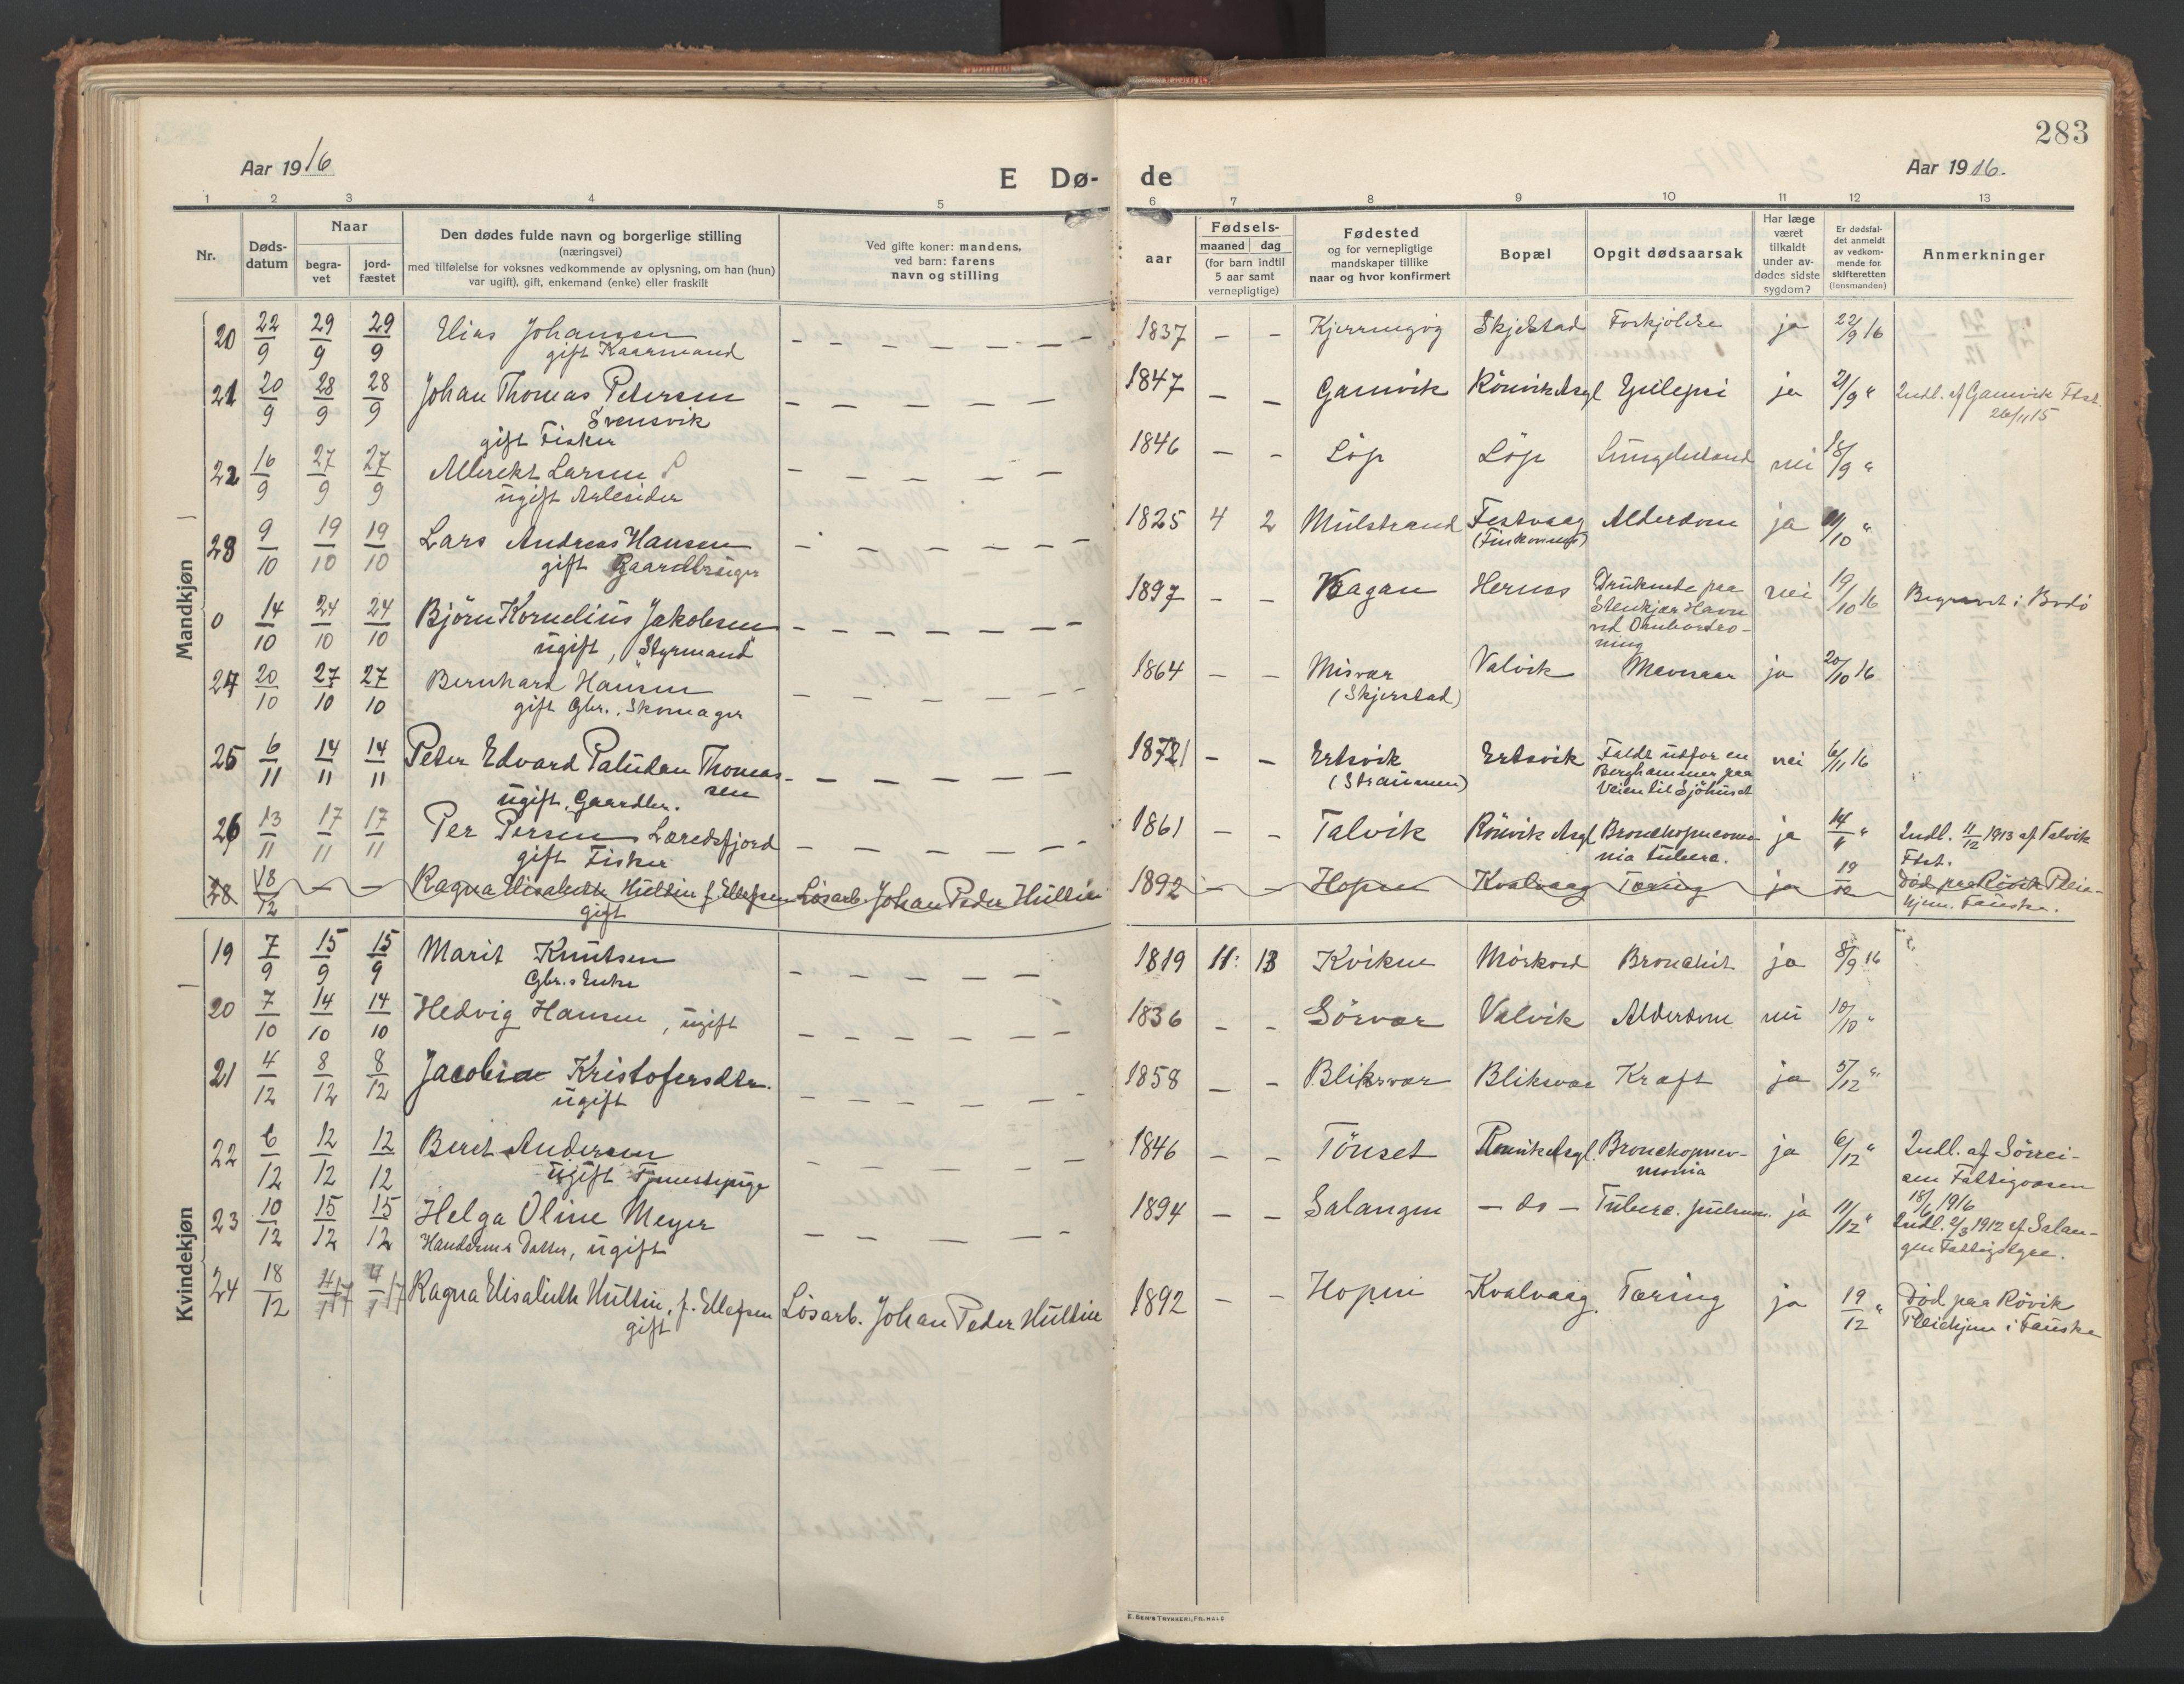 283
Aar 1916
E Dø-
de
Aar 1916.
1 2 3 4 5 6 7 8 9 10 11 12 13
Nr.
Døds-
datum
Naar
begra-
vet
jord-
fæstet
Den dødes fulde navn og borgerlige stilling
(næringsvei)
med tilføielse for voksnes vedkommende av oplysning, om han (hun)
var ugift), gift, enkemand (enke) eller fraskilt
Ved gifte koner: mandens,
ved barn: farens
navn og stilling
aar
Fødsels-
maaned dag
(for barn indtil
5 aar samt
vernepligtige)
Fødested
og for vernepligtige
mandskaper tillike
naar og hvor konfirmert
Bopæl
Opgit dødsaarsak
Har læge
været
tilkaldt
under av-
dødes sidste
sygdom?
Er dødsfal-
det anmeldt
av vedkom-
mende for
skifteretten
(lensmanden)
Anmerkninger
Mandkjøn
20 22/9 29/9 29/9 Elias Johansen – – – – – – 1837 – – Kjerringøg Skjelstad Forkjölelse ja 22/9 16
gift Kaarmand
21 20/9 28/9 28/9 Johan Thomas Petersen – – – – – 1847 – – Gamvik Rönvik Asyl Epilepsi ja 21/9 " Indl. af Gamvik Fdst.
Svensvik 26/11 15
gift Fisker
22 16/9 27/9 27/9 Albrekt Larsen – – – – – 1846 – – Löp Löp nei 18/9 "
ugift Arbeider
23 9/10 19/10 19/10 Lars Andreas Hansen – – – – – – 1825 4 2 Mulstrand Festvaag Alderdom ja 11/10 "
gift Gaardbruger
0 14/10 24/10 24/10 Björn Kornelius Jakobsen – – – – – – 1897 – – Kagan Hernes Druknede paa nei 19/10 16 Begravet i Bodö
ugift, Styrmand Stenkjær Havn
ved Ombordro-
ning
24 20/10 27/10 27/10 Bernhard Hansen – – – – – – 1864 – – Misvær Valvik Mavesaar ja 20/10 16
gift Gbr., Skomager (Skjerstad)
25 6/11 14/11 14/11 Peter Edvard Paludan Thomas- – – – – – 1871 – – Ertsvik Ertsvik Faldt utfor en nei 6/11 16
sen (Straumen) Berghammer paa
ugift, Gaardbr. Veien til Sjöhuset
26 13/11 17/11 17/11 Per Persen Læredsfjord – – – – – – 1861 – – Talvik Rönvik Asyl Bronchopneumo- ja 14/11 " Indl. 11/12 1913 af Talvik
gift Fisker nia tuberc. Fdst.
28 18/12 – – Ragna Elisabeth Hultin f. Ellefsen Lösarb. Johan Peder Hultin 1892 – – Hopen Kvalvaag Tæring ja 19/12 Död paa Rövik Pleie-
gift hjem. Fauske.
Kvindekjøn
19 7/9 15/9 15/9 Marit Knutsen – – – – – 1819 11 13 Kvikne Mörkved Bronchit ja 8/9 16
Gbr.s Enke
20 7/10 14/10 14/10 Hedvig Hansen, ugift – – – – – – 1836 – – Sörvær Valvik Alderdom nei 10/10 "
21 4/12 8/12 8/12 Jacobia Kristofersdtr. – – – – – – 1858 – – Bliksvær Bliksvær Kræft ja 5/12 "
ugift
22 6/12 12/12 12/12 Beret Andersen – – – – – – 1846 – – Tönset Rönvik Asyl. Bronchopnev- ja 6/12 " Indl. af Sörrei-
ugift Tjenestepige monia sen Fattigvæsen
18/6 1916
23 10/12 15/12 15/12 Helga Oline Meyer – – – – – – 1894 – – Salangen – do – Tuberc. pulmon. ja 11/12 " Indl. 2/3 1912 af Salan-
Handsmns Datter, ugift gen Fattigstyre.
24 18/12 Ragna Elisabeth Hultin, f. Ellefsen Lösarb. Johan Peder Hultin 1892 – – Hopen Kvalvaag. Tæring ja 19/12 " Död paa Rövik
gift Pleiehjem i Fauske
E. SEM'S TRYKKERI, FR.HALD